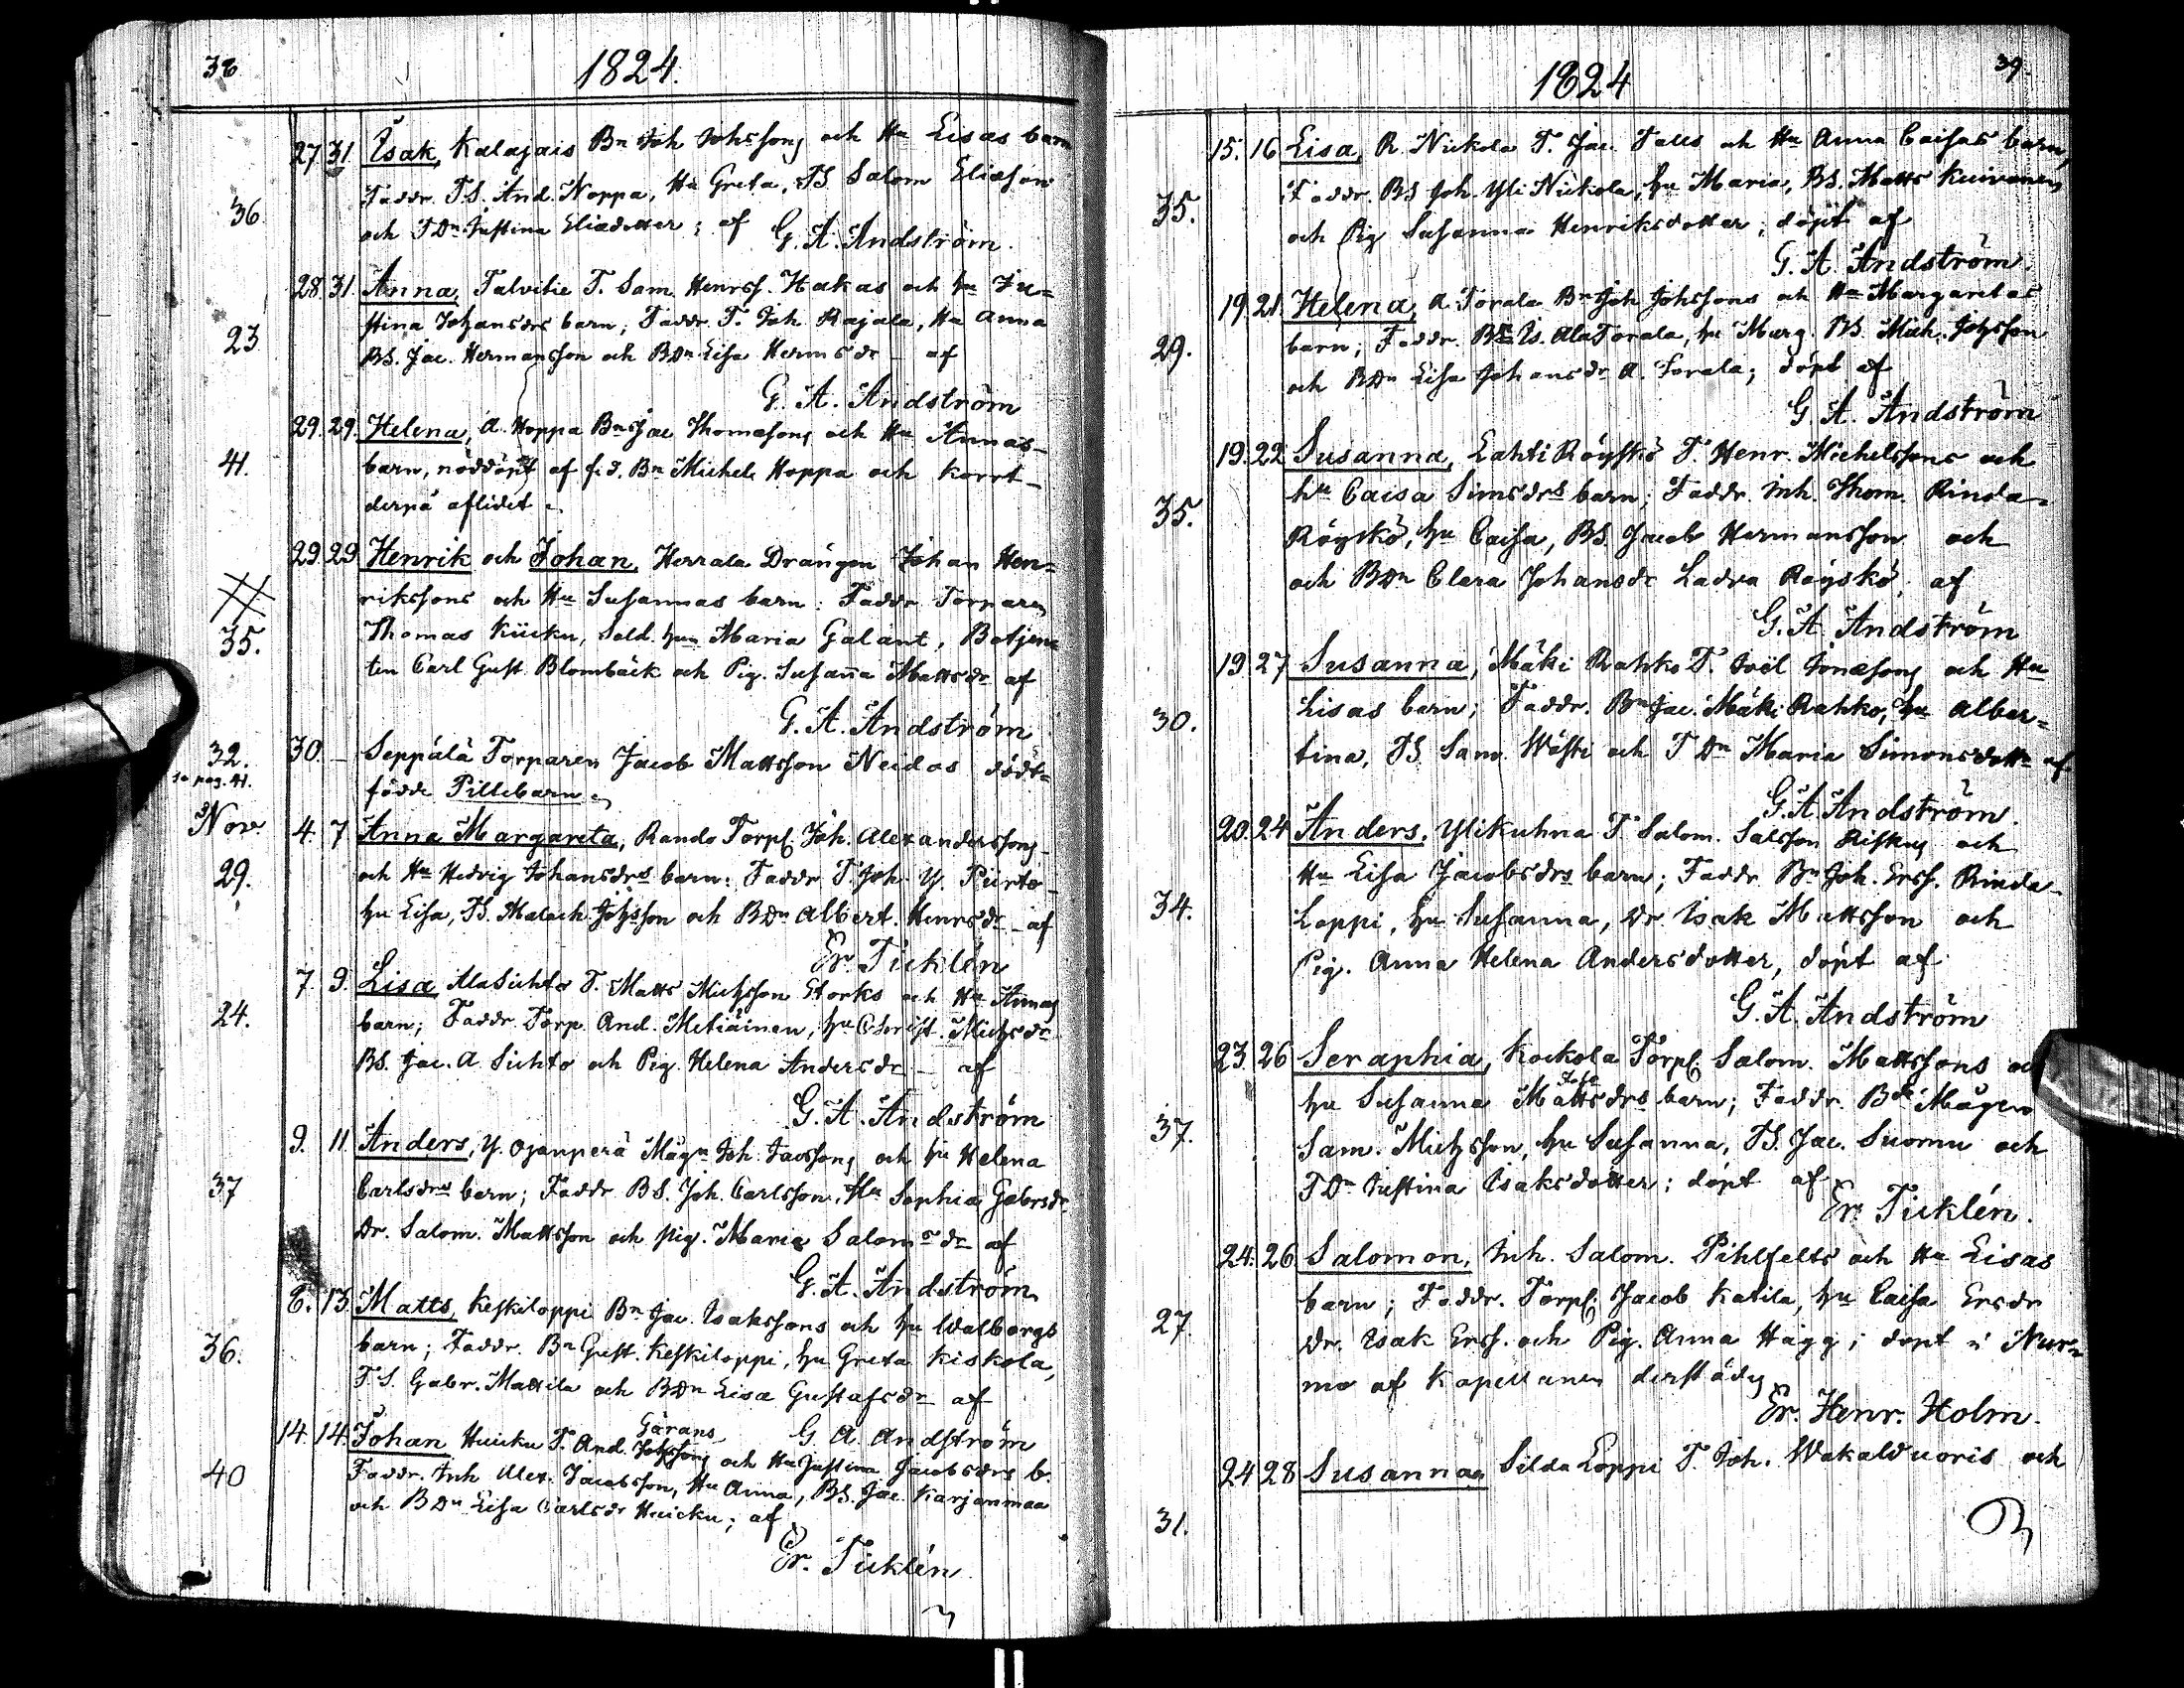 38
1824.
27 31 Isak, Kalajais Bn Joh Johssons och Hu Lisas barn
Faddr. T.S. And. Noppa, Hu Greta, TS Salom Eliæson
36. och TDn Justina Eliædotter; af G. A. Andström.
28. 31. Anna, Talvitie T. Sam. Henrss. Hakas och hu Ju=
23 stina Johansdrs barn; Faddr. T. Joh. Rajala, Hu Anna
BS. Jac. Hermansson och BDn Lisa Hermsdr – af
G. A. Andström
29. 29. Helena, A. Hoppa Bns Jac Thomæsons och Hu Annas
41. barn, nöddöpt af f.d. Bn Michel Hoppa och kort
derpå aflidet.
29 29 Henrik och Johan, Herrala Drängen Johan Hen=
rikssons och Hu Susannas barn: Faddr Torparen
35. Thomas Kücku, Sold. hun Maria Galant, Betjen
ten Carl Gust Blombäck och Pig. Susaña Mattsdr af
G. A. Andström
32. 30. – Seppälä Torparen Jacob Mattsson Neidos dödt=
pag. 41. födde Pillebarn.
Nov. 4. 7 Anna Margareta, Rando Torpf. Joh. Alexanderssons
29. och Hu Hedvig Johansdrs barn: Faddr T. Joh. Y. Piirto
hu Lisa, TS. Malach Johsson och BDn Albert. Henrsdr – af
Er. Ticklén
7. 9. Lisa AlaSichto T. Matts Michsson Storks och Hu Annas
24. barn; Faddr. Torp. And. Metiäinen, hu Christ. Michsdr
BS. Jac. A Sichto och Pig. Helena Andersdr – af
G. A. Andström
9. 11 Anders, Y. Ojanperä Mågn Joh. Jacssons och hu Helena
37 Carlsdrs barn; Faddr BS. Joh. Carlsson, Hu Sophia Gabrsdr
Dr. Salom. Mattsson och pig. Maria Salomsdr af
G. A. Andström
8. 13 Matts, Keskiloppi Bn Jac. Isakssons och hu Walborgs
36. barn; Faddr. Bn Gust. Keskiloppi, hu Greta Kiskola,
T.S. Gabr. Mattila och BDn Lisa Gustafsdr af
G. A. Andström
14. 14. Johan Huicku T. And. Johssons Gärans och Hu Justina Jacobsdrs b.
40 Faddr. Inh Alex. Jacobsson, Hu Anna, BS. Jac. Karjanmaa
och BDn Lisa Carlsdr Huicku; af
Er. Ticklén
39.
1824
15. 16 Lisa, R. Nickola T. Jac. Talus och Hu Anna Caisas barn,
35. Faddr. BS Joh. Yli Nickola, hu Maria, BS. Matts Kuivanen
och Pig Susanna Henriksdotter; döpt af
G. A. Andström.
19 21 Helena, A. Torala Bn Joh Johssons och Hu Margaretas
29. barn; Faddr. Bn Is. AlaTorala, hu Marg. BS. Mich. Johsson
och BDn Lisa Johansdr A. Torala; döpt af
G. A. Andström
19. 22 Susanna, Lahti Röyskö T. Henr. Michelssons och
35. hu Caisa Simsdrs barn; Faddr. Inh. Thom. Rinda-
Röyskö, hu Caisa, BS. Jacob Hermansson och
och BDn Clara Johansdr Ladva Röyskö; af
G. A. Andström
19 27 Susanna, Mäki Rahko T. Joël Jonæsons och Hu
30. Lisas barn; Faddr. Bn Jac. Mäki Rahko, hu Alber=
tina, TS Sam. Wästi och TDn Maria Simonsdottr af
G. A. Andström.
20. 24 Anders, Ylikuhna T. Salom. Salsson Riskus och
Hu Lisa Jacobsdrs barn; Faddr Bn Joh. Erss. Rinda
34. Loppi, hu Susanna, Dr Isak Mattsson och
Pig. Anna Helena Andersdotter, döpt af
G. A. Andström
23. 26 Seraphia, Kockola Torpf. Salom. Mattssons och
37. hu Susanna Mattsdrs barn; Faddr. Bde Mågen
Sam. Michsson, hu Susanna, TS. Jac. Suomu och
TDn Justina Isaksdotter; döpt af
Er. Ticklén.
24. 26 Salomon, Inh. Salom. Pihlfelts och Hu Lisas
27. barn; Faddr. Torpf. Jacob Katila, hu Caisa Ersdr
Dr. Isak Erss. och Pig. Anna Hägg; döpt i Nur=
mo af Kapellanen derstädes
Er. Henr. Holm.
24 28 Susanna Silda Loppi T. Joh. Wakalduoris och
31.